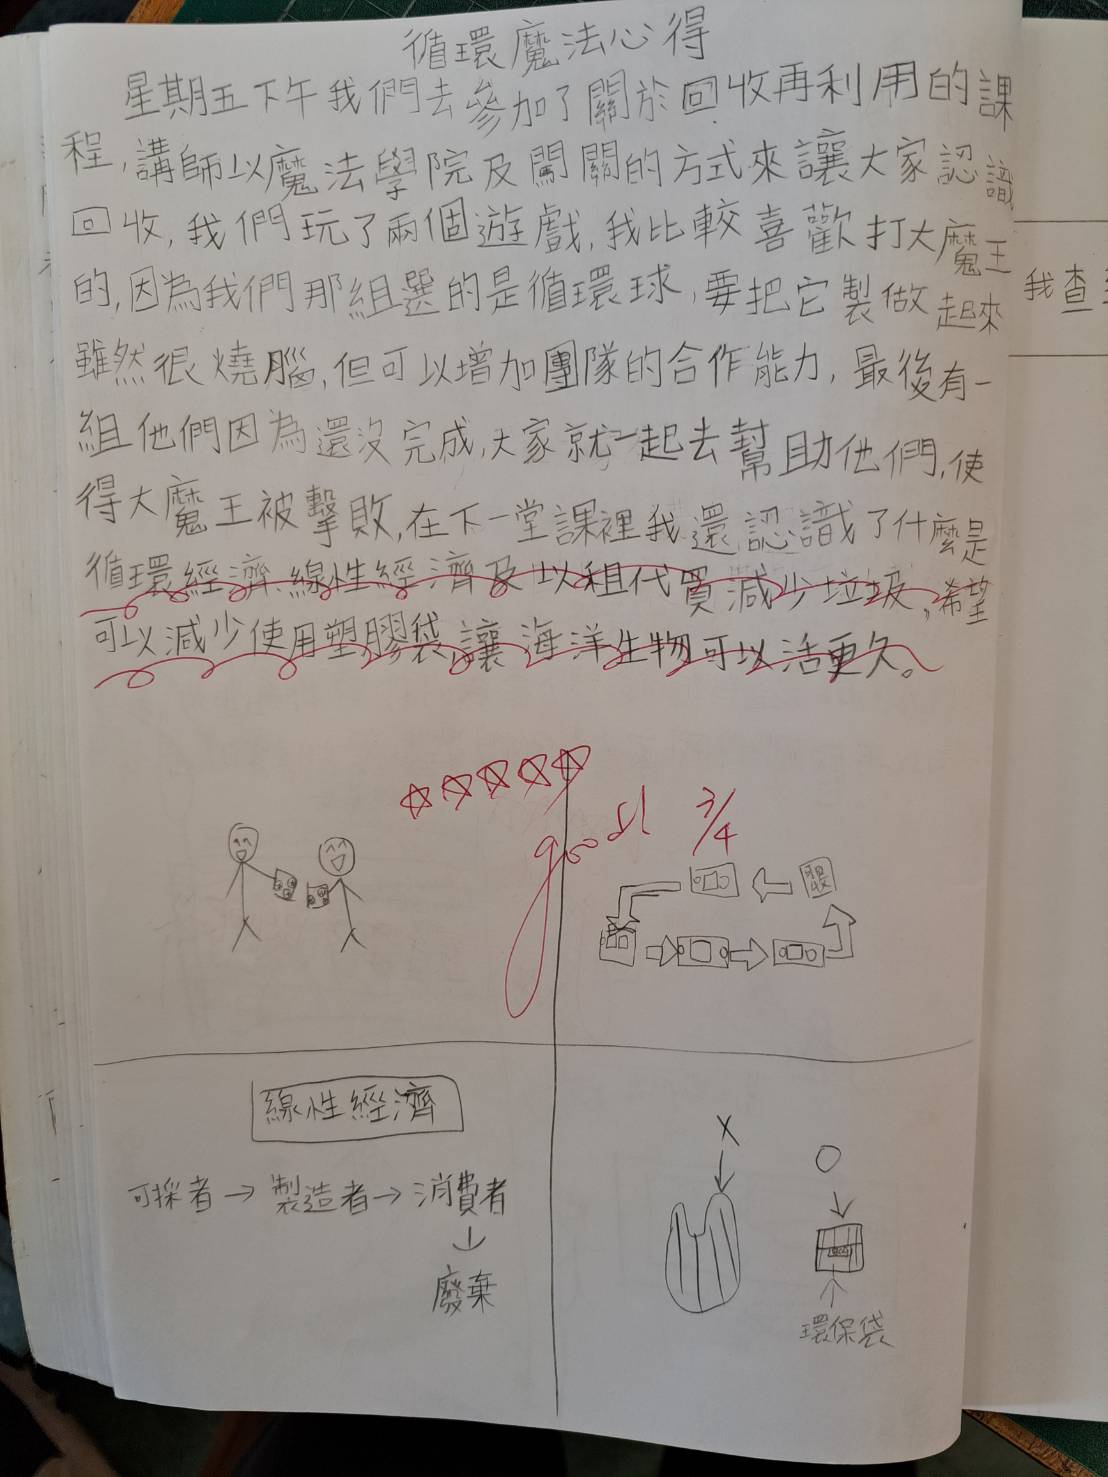 循環魔法心得
星期五下午我們去參加了關於回收再利用的課
程,講師以魔法學院及闖關的方式來讓大家認識
回收,我們玩了兩個遊戲,我比較喜歡打大魔王
的,因為我們那組選的是循環球,要把它製做起來
雖然很燒腦,但可以增加團隊的合作能力,最後有一
組他們因為還沒完成,大家就一起去幫助他們,使
得大魔王被擊敗,在下一堂課裡我還認識了什麼是
循環經濟、線性經濟及以租代買減少垃圾,希望
可以減少使用塑膠袋讓海洋生物可以活更久。
我查
good
3/4
線性經濟
可採者→製造者→消費者
↓
廢棄
X
○
環保袋